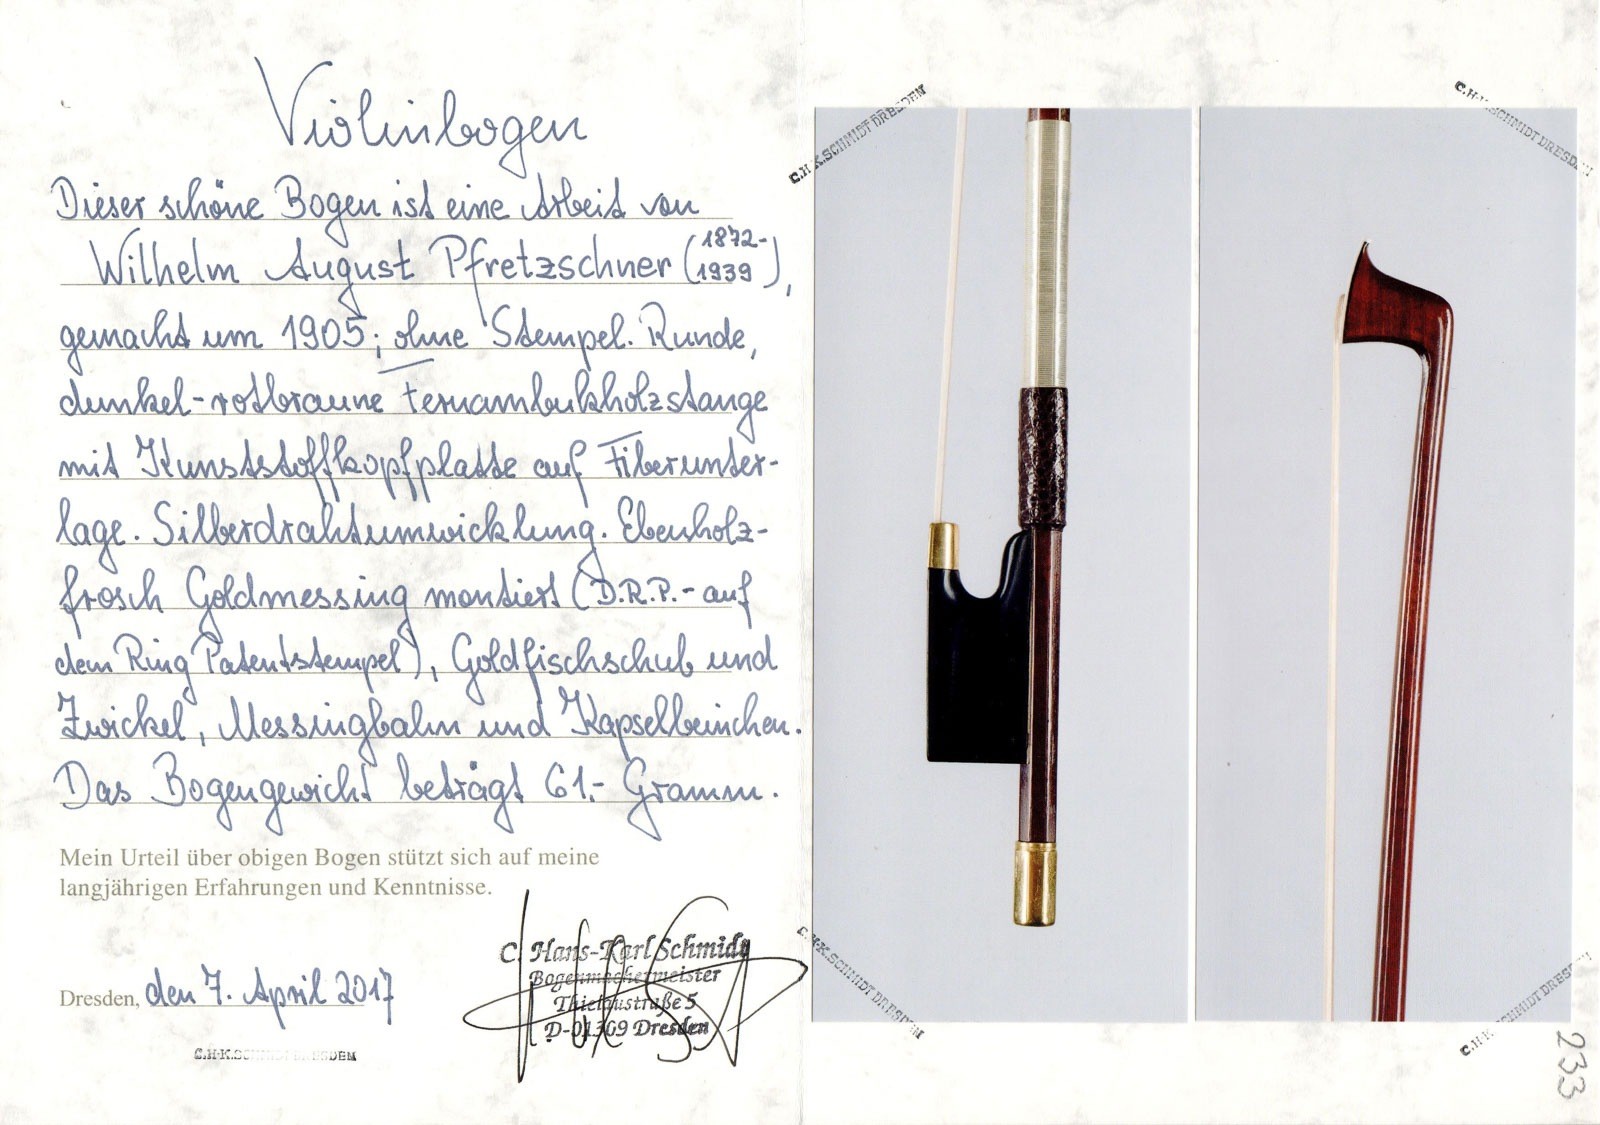 Violinbogen
Dieser schöne Bogen ist eine Arbeit von
Wilhelm August Pfretzschner (1872-
1939),
gemacht um 1905; ohne Stempel. Runde,
dunkel-rotbraune Fernambukholzstange
mit Kunststoffkopfplatte auf Fiberunter-
lage. Silberdrahtumwicklung. Ebenholz-
frosch Goldmessing montiert (D.R.P.- auf
dem Ring Patentstempel), Goldfischschub und
Zwickel, Messingbahn und Kapselbeinchen.
Das Bogengewicht beträgt 61,- Gramm.
Mein Urteil über obigen Bogen stützt sich auf meine
langjährigen Erfahrungen und Kenntnisse.
C. Hans-Karl Schmidt
Bogenmachermeister
Thielaustraße 5
D-01309 Dresden
Dresden, den 7. April 2017
C.H-K.SCHMIDT DRESDEN
C.H-K.SCHMIDT DRESDEN
C.H-K.SCHMIDT DRESDEN
C.H-K.SCHMIDT DRESDEN
C.H-K.SCHMIDT DRESDEN
233